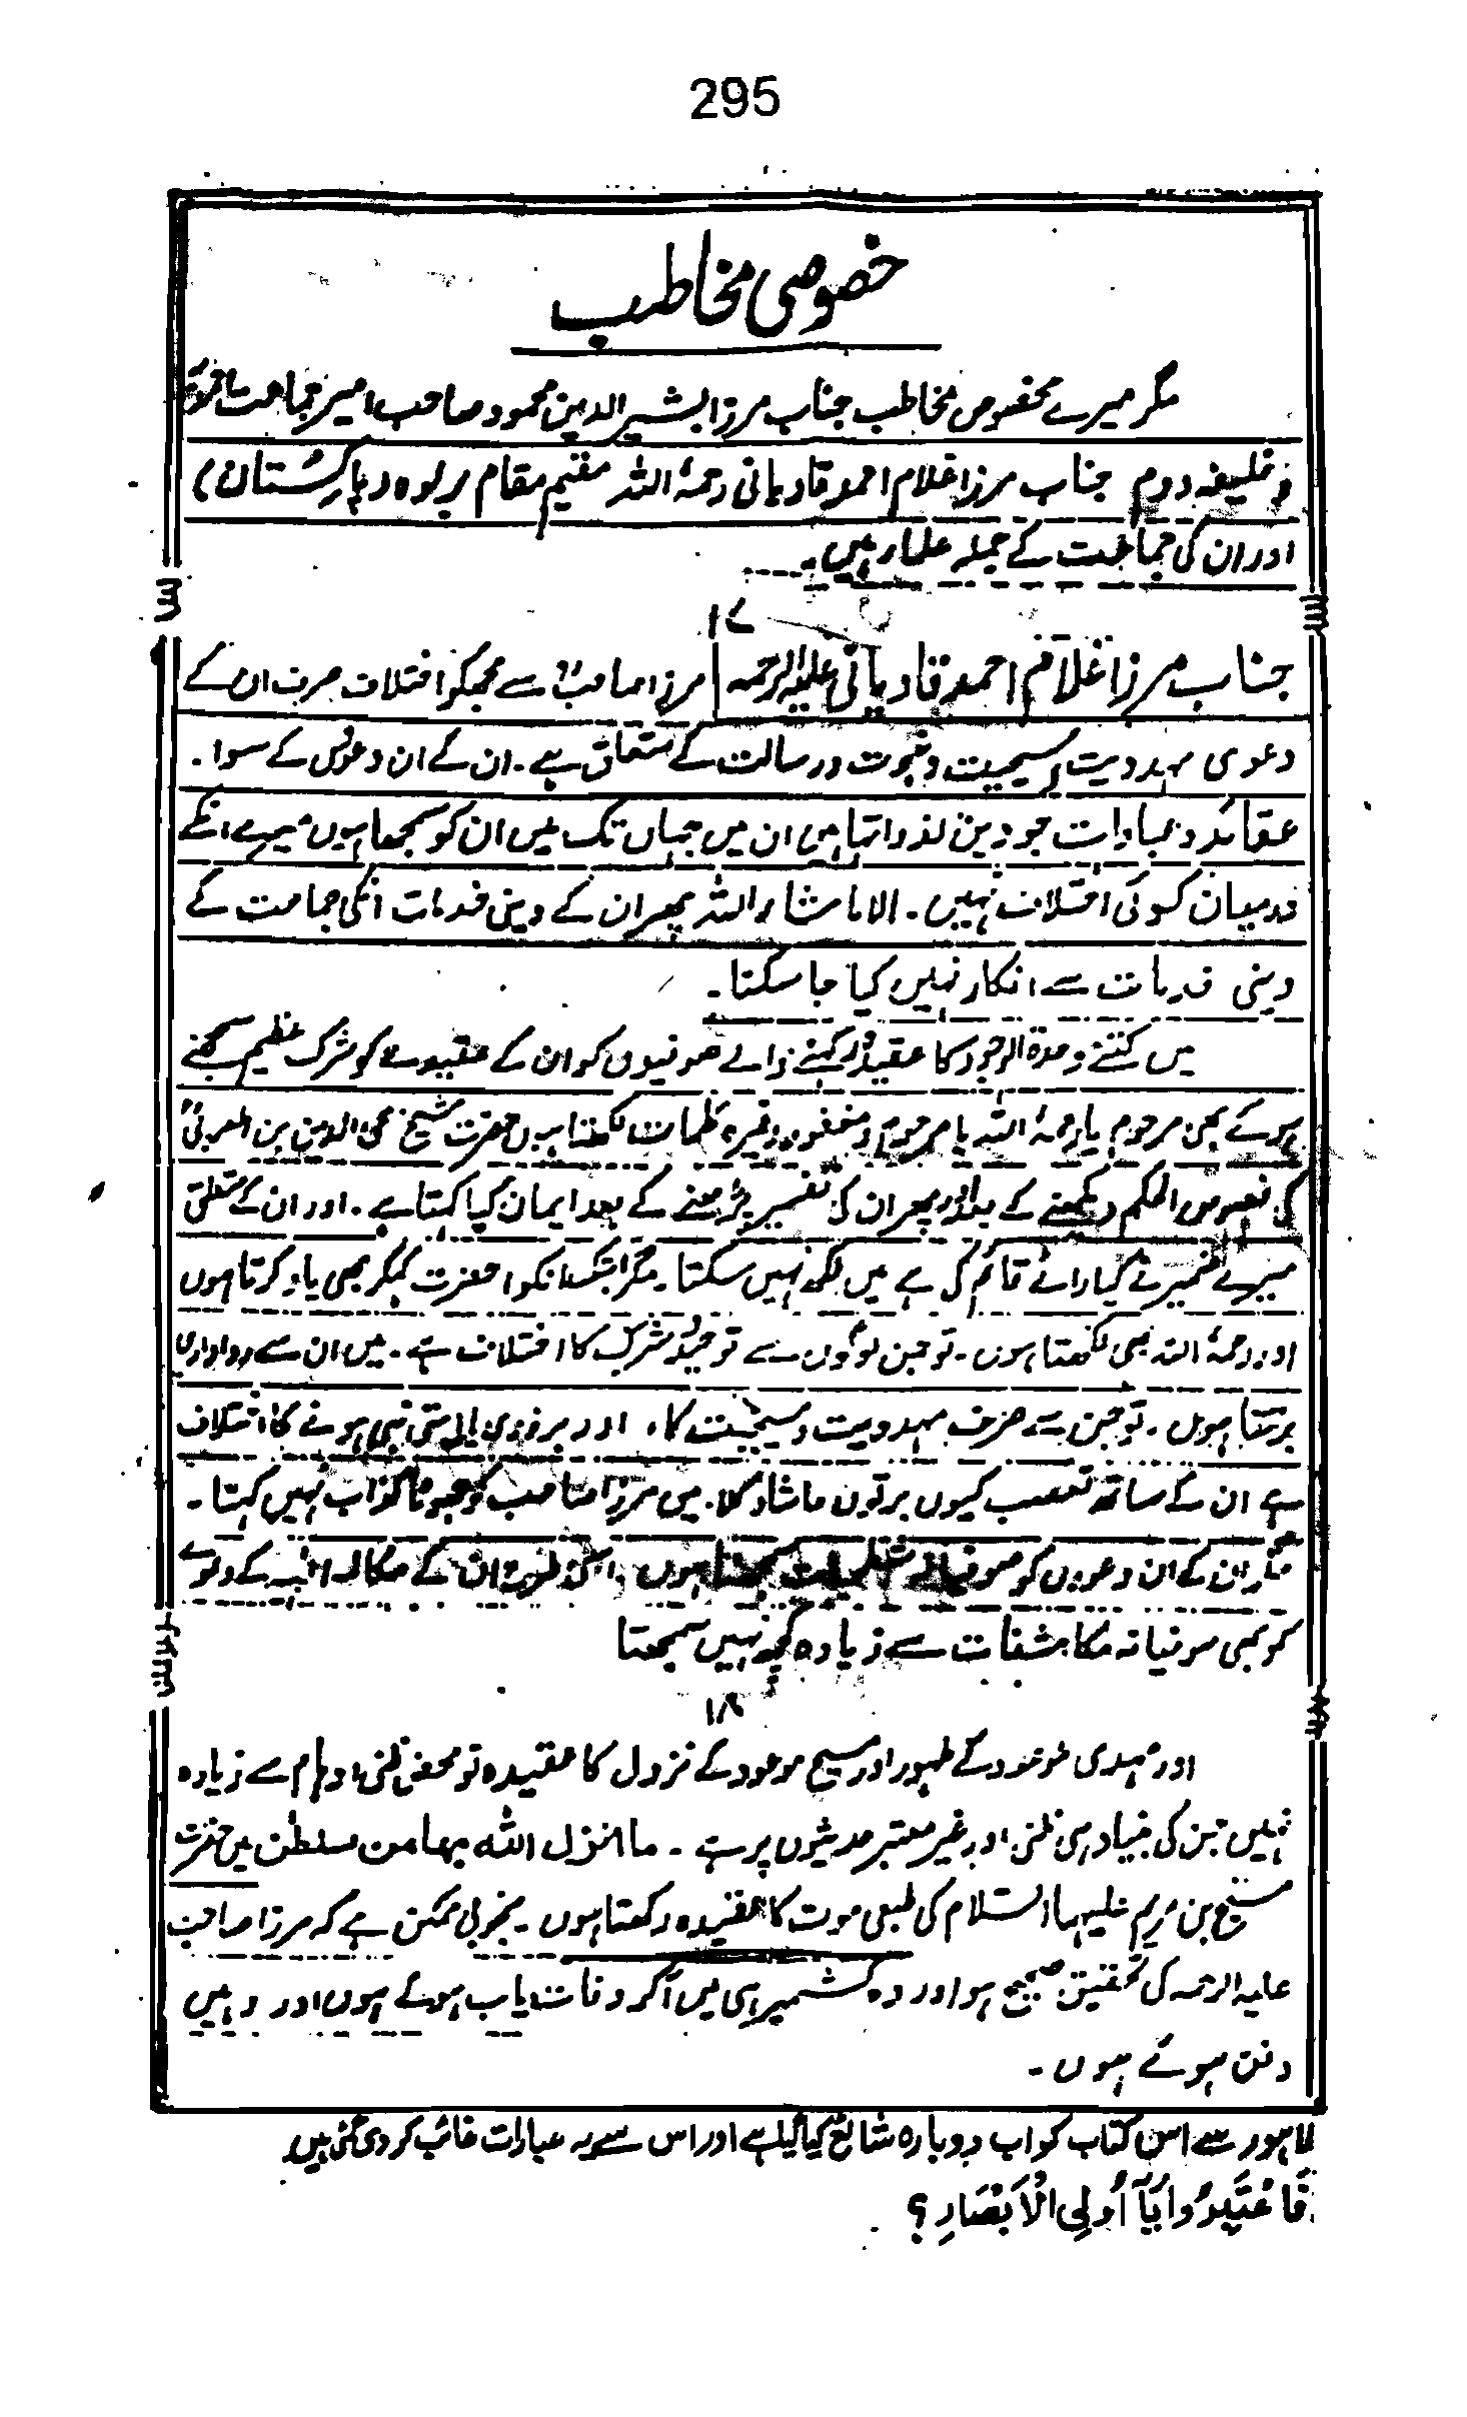 295
خصوصی مخاطب
مگر میرے مخصوص مخاطب جناب مرزا بشیر الدین محمود صاحب امیر جماعت احمدیہ
و خلیفہ دوم جناب مرزا غلام احمد قادیانی رحمۃ اللہ مقیم مقام ربوہ (پاکستان)
اور ان کی جماعت کے جملہ علماء ہیں۔
۱۷
جناب مرزا غلام احمد قادیانی علیہ الرحمہ | مرزا صاحب سے مجھکو اختلاف صرف ان کے
دعوی مہدویت و مسیحیت و نبوت و رسالت کے متعلق ہے۔ ان کے ان دعووں کے سوا۔
عقائد و عبادات جو دین کے ہیں ان میں جہاں تک میں ان کو سمجھا ہوں میرے انکے
درمیان کوئی اختلاف نہیں۔ الا ماشاء اللہ پھر ان کے دینی خدمات انکی جماعت کے
دینی خدمات سے انکار نہیں کیا جا سکتا۔
میں کتنے وحدۃ الوجود کا عقیدہ رکھنے والے صوفیوں کو ان کے عقیدے کو شرک عظیم سمجھنے
ہوئے بھی مرحوم یا رحمۃ اللہ یا مرحوم و مغفور وغیرہ کلمات لکھتا ہوں حضرت شیخ محی الدین بن العربیؒ
کی فصوص الحکم دیکھنے کے بعد اور پھر ان کی تفسیر پڑھنے کے بعد ایمان کیا کہتا ہے۔ اور ان کے متعلق
میرے ضمیر نے کیا رائے قائم کی ہے میں لکھ نہیں سکتا۔ مگر ابتک انکو حضرت کہکر بھی یاد کرتا ہوں
اور رحمۃ اللہ بھی لکھتا ہوں۔ تو جن لوگوں سے توحید و شرک کا اختلاف ہے۔ میں ان سے رواداری
برتتا ہوں۔ تو جن سے صرف مہدویت و مسیحیت کا، اور بروزی یا امتی نبی ہونے کا اختلاف
ہے ان کے ساتھ تعصب کیوں برتوں حاشاوکلا۔ میں مرزا صاحب کو جھوٹا کذاب نہیں کہتا۔
مگر ان کے ان دعووں کو صوفیانہ شطحیات سمجھتا ہوں۔ اسکی طرح ان کے مکالمہ الٰہیہ کے دعوے
کو بھی صوفیانہ مکاشفات سے زیادہ کچھ نہیں سمجھتا
۱۸
اور مہدی موعود کے ظہور اور مسیح موعود کے نزول کا عقیدہ تو محض ظنی اوہام سے زیادہ
نہیں جن کی بنیاد ہی ظنی اور غیر معتبر حدیثوں پر ہے۔ ما انزل اللہ بہا من سلطن میں حضرت
مسیح بن مریم علیہما السلام کی طبعی موت کا عقیدہ رکھتا ہوں۔ بخوبی ممکن ہے کہ مرزا صاحب
علیہ الرحمہ کی تحقیق صحیح ہو اور وہ کشمیر ہی میں آکر وفات یاب ہوئے ہوں اور وہیں
دفن ہوئے ہوں۔
لاہور سے اس کتاب کو اب دوبارہ شائع کیا گیا ہے اور اس سے یہ عبارات غائب کر دی گئی ہیں
فَاعْتَبِرُوا یَآ اُولِی الْاَبْصَارِ؟